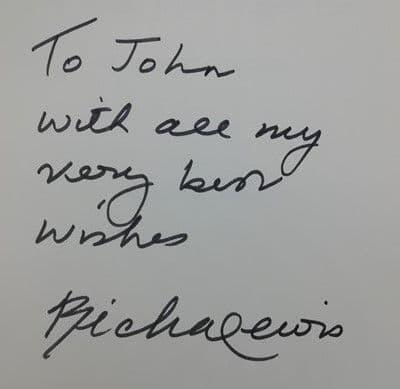 To John
with all my
very best
wishes
Richalewis